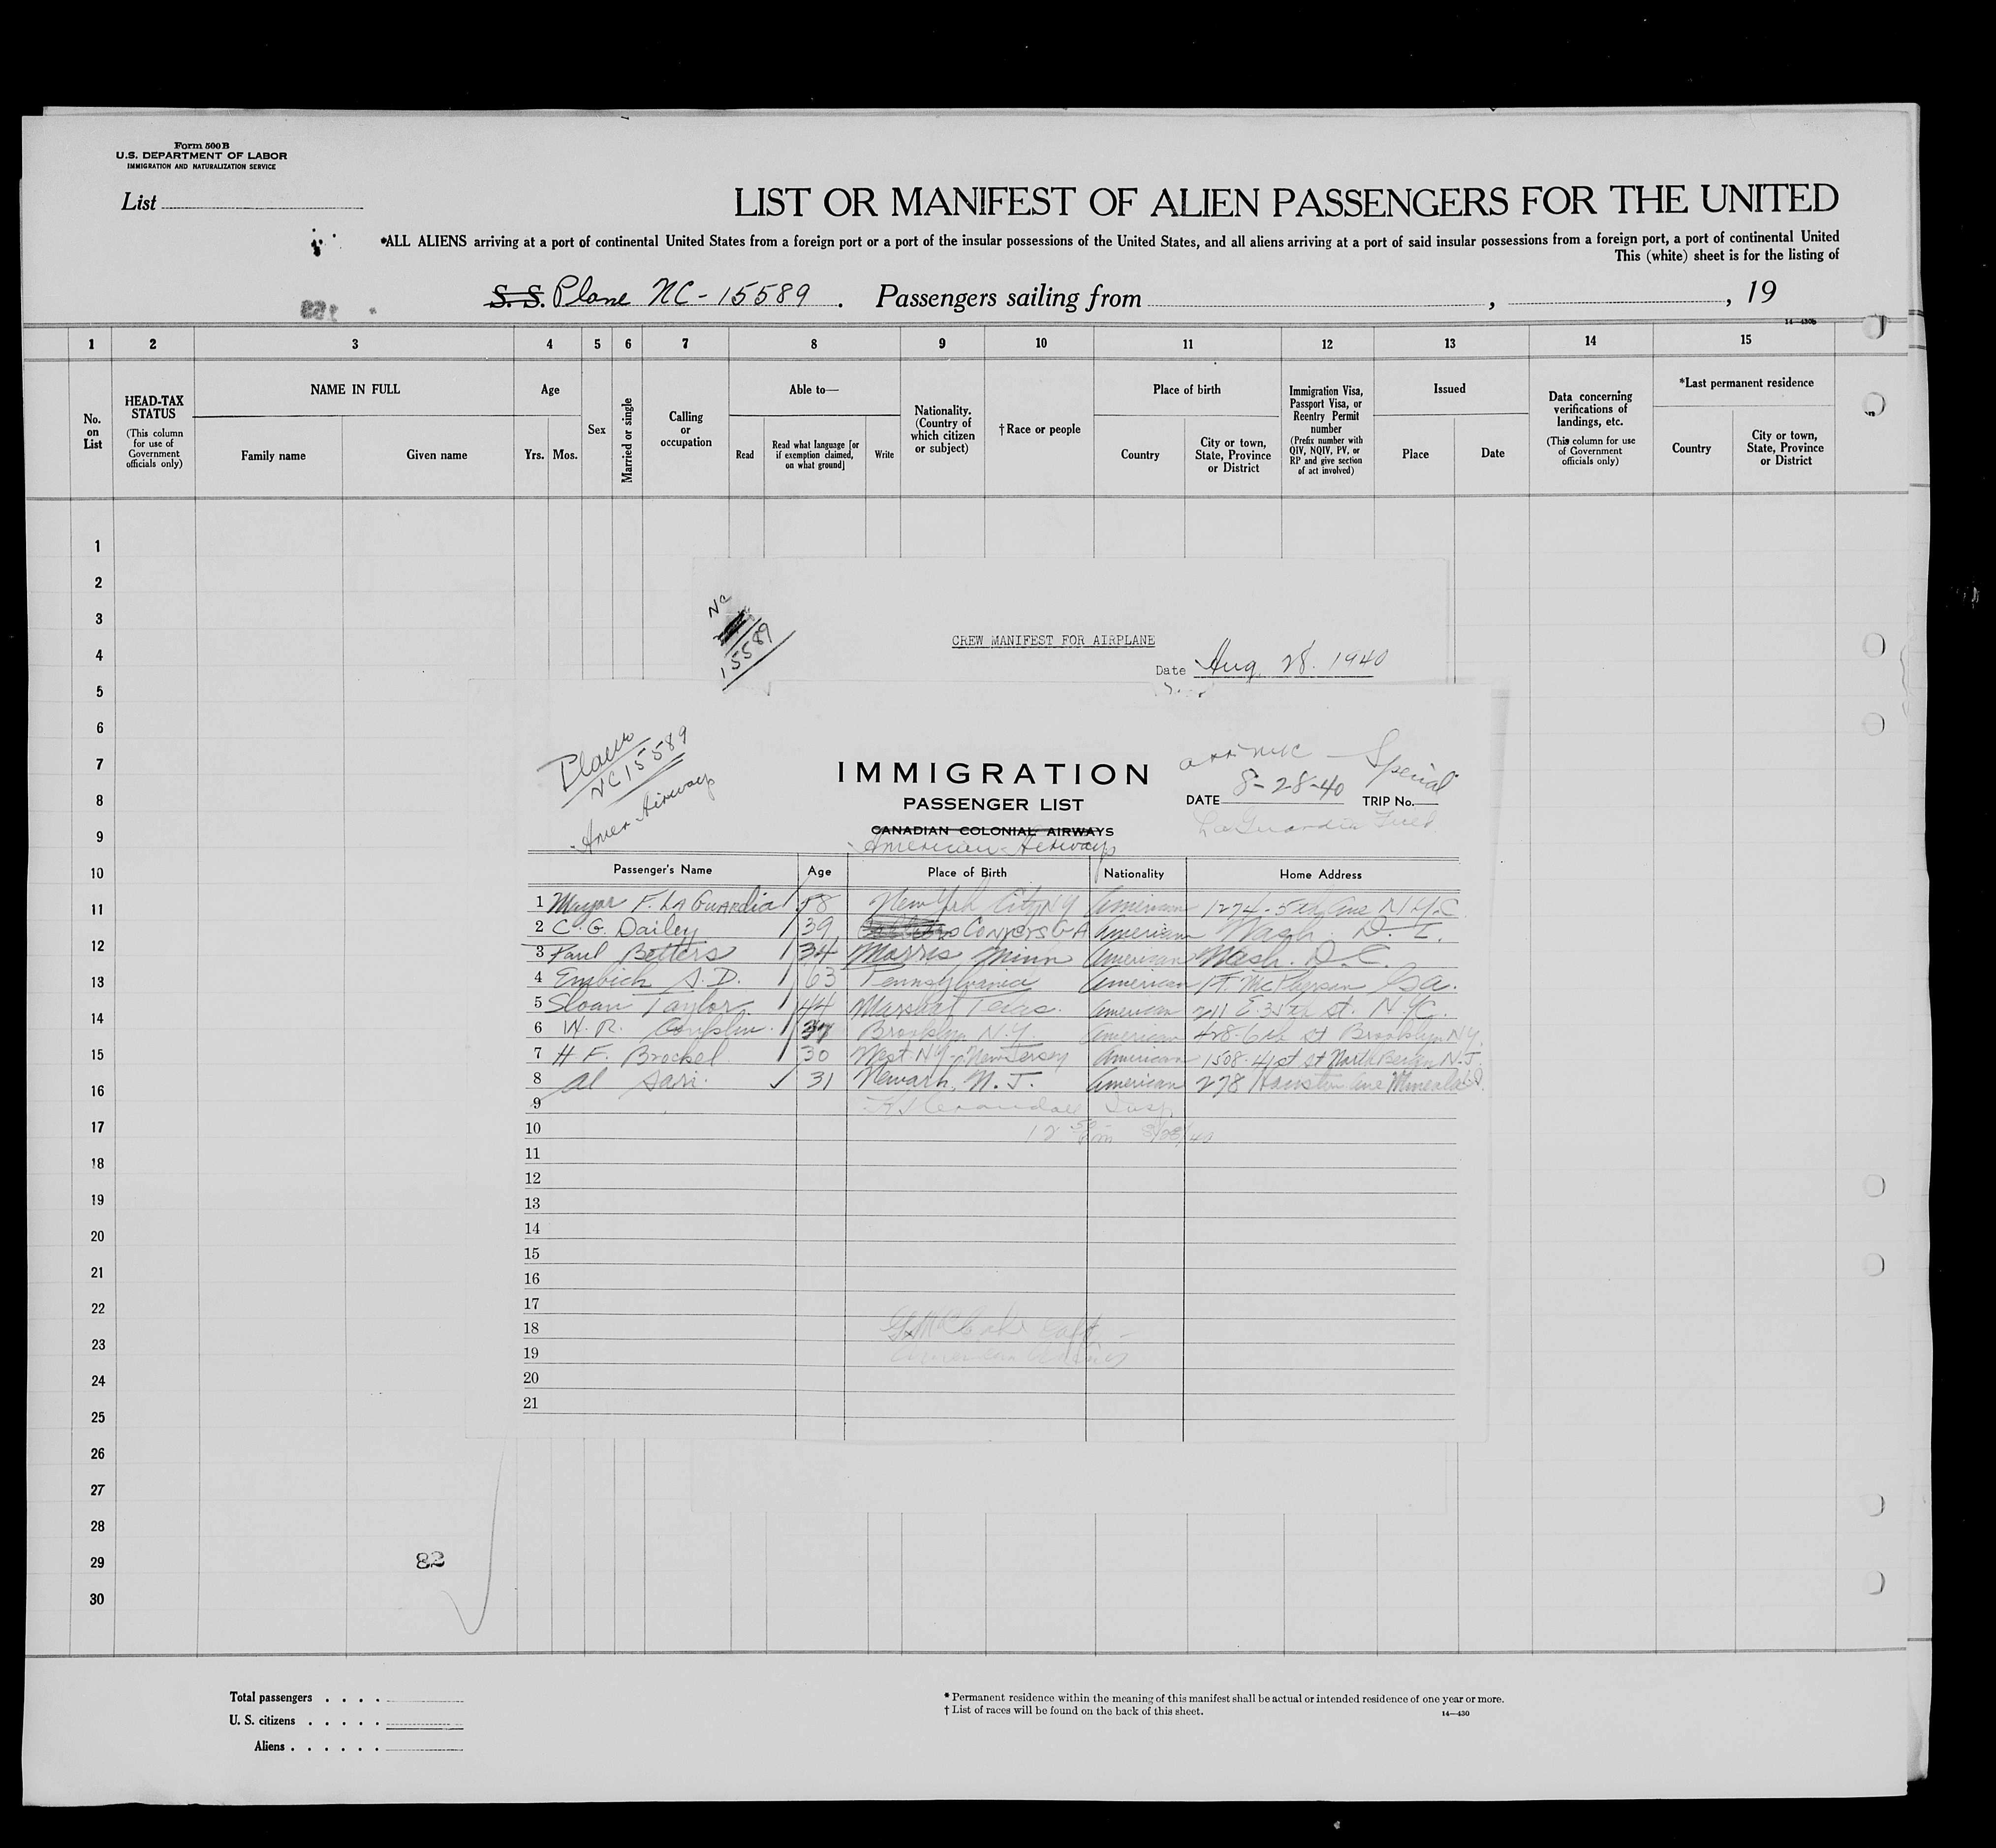 Form 500 B
U.S. DEPARTMENT OF LABOR
IMMIGRATION AND NATURALIZATION SERVICE
List
LIST OR MANIFEST OF ALIEN PASSENGERS FOR THE UNITED
*ALL ALIENS arriving at a port of continental United States from a foreign port or a port of the insular possessions of the United States, and all aliens arriving at a port of said insular possessions from a foreign port, a port of continental United
This (white) sheet is for the listing of
S. S. Plane NC-15589 . Passengers sailing from , , 19
14—430b
1 2 3 4 5 6 7 8 9 10 11 12 13 14 15
No. on List
HEAD-TAX STATUS
(This column for use of Government officials only)
NAME IN FULL
Family name Given name
Age
Yrs. Mos.
Sex
Married or single
Calling or occupation
Able to—
Read
Read what language [or if exemption claimed, on what ground]
Write
Nationality. (Country of which citizen or subject)
†Race or people
Place of birth
Country
City or town, State, Province or District
Immigration Visa, Passport Visa, or Reentry Permit number
(Prefix number with QIV, NQIV, PV, or RP and give section of act involved)
Issued
Place Date
Data concerning verifications of landings, etc.
(This column for use of Government officials only)
*Last permanent residence
Country
City or town, State, Province or District
1
2
3
4
5
6
7
8
9
10
11
12
13
14
15
16
17
18
19
20
21
22
23
24
25
26
27
28
29
30
Nc
15589
CREW MANIFEST FOR AIRPLANE
Date Aug. 28. 1940
Plane
NC 15589
Amer Airways
IMMIGRATION
PASSENGER LIST
CANADIAN COLONIAL AIRWAYS
American Airways
arr NYC Special
DATE 8-28-40 TRIP No.
La Guardia Field
Passenger's Name Age Place of Birth Nationality Home Address
1 Mayor F. La Guardia 58 New York City NY American 1274-5th Ave N.Y.C
2 C. G. Dailey 39 Conyers GA American Wash. D.C.
3 Paul Betters 34 Morris Minn American Wash. D.C.
4 Embick S.D. 63 Pennsylvania American Ft. McPherson Ga.
5 Sloan Taylor 44 Marshal Texas. American 211 E. 35th St. N.Y.C.
6 W. R. 37 Brooklyn N.Y. American 428-6th St Brooklyn N.Y.
7 H F. Brockel 30 West N.Y. New Jersey American 1508-41st St North Bergen N.J.
8 Al Sari. 31 Newark, N.J. American 278 Houston Ave Mineola
9 Crandall Insp
10 12 50 pm 8/28/40
11
12
13
14
15
16
17
18 Capt.
19 American Airlines
20
21
82
Total passengers . . . .
U. S. citizens . . . . .
Aliens . . . . . .
* Permanent residence within the meaning of this manifest shall be actual or intended residence of one year or more.
† List of races will be found on the back of this sheet.
14—430